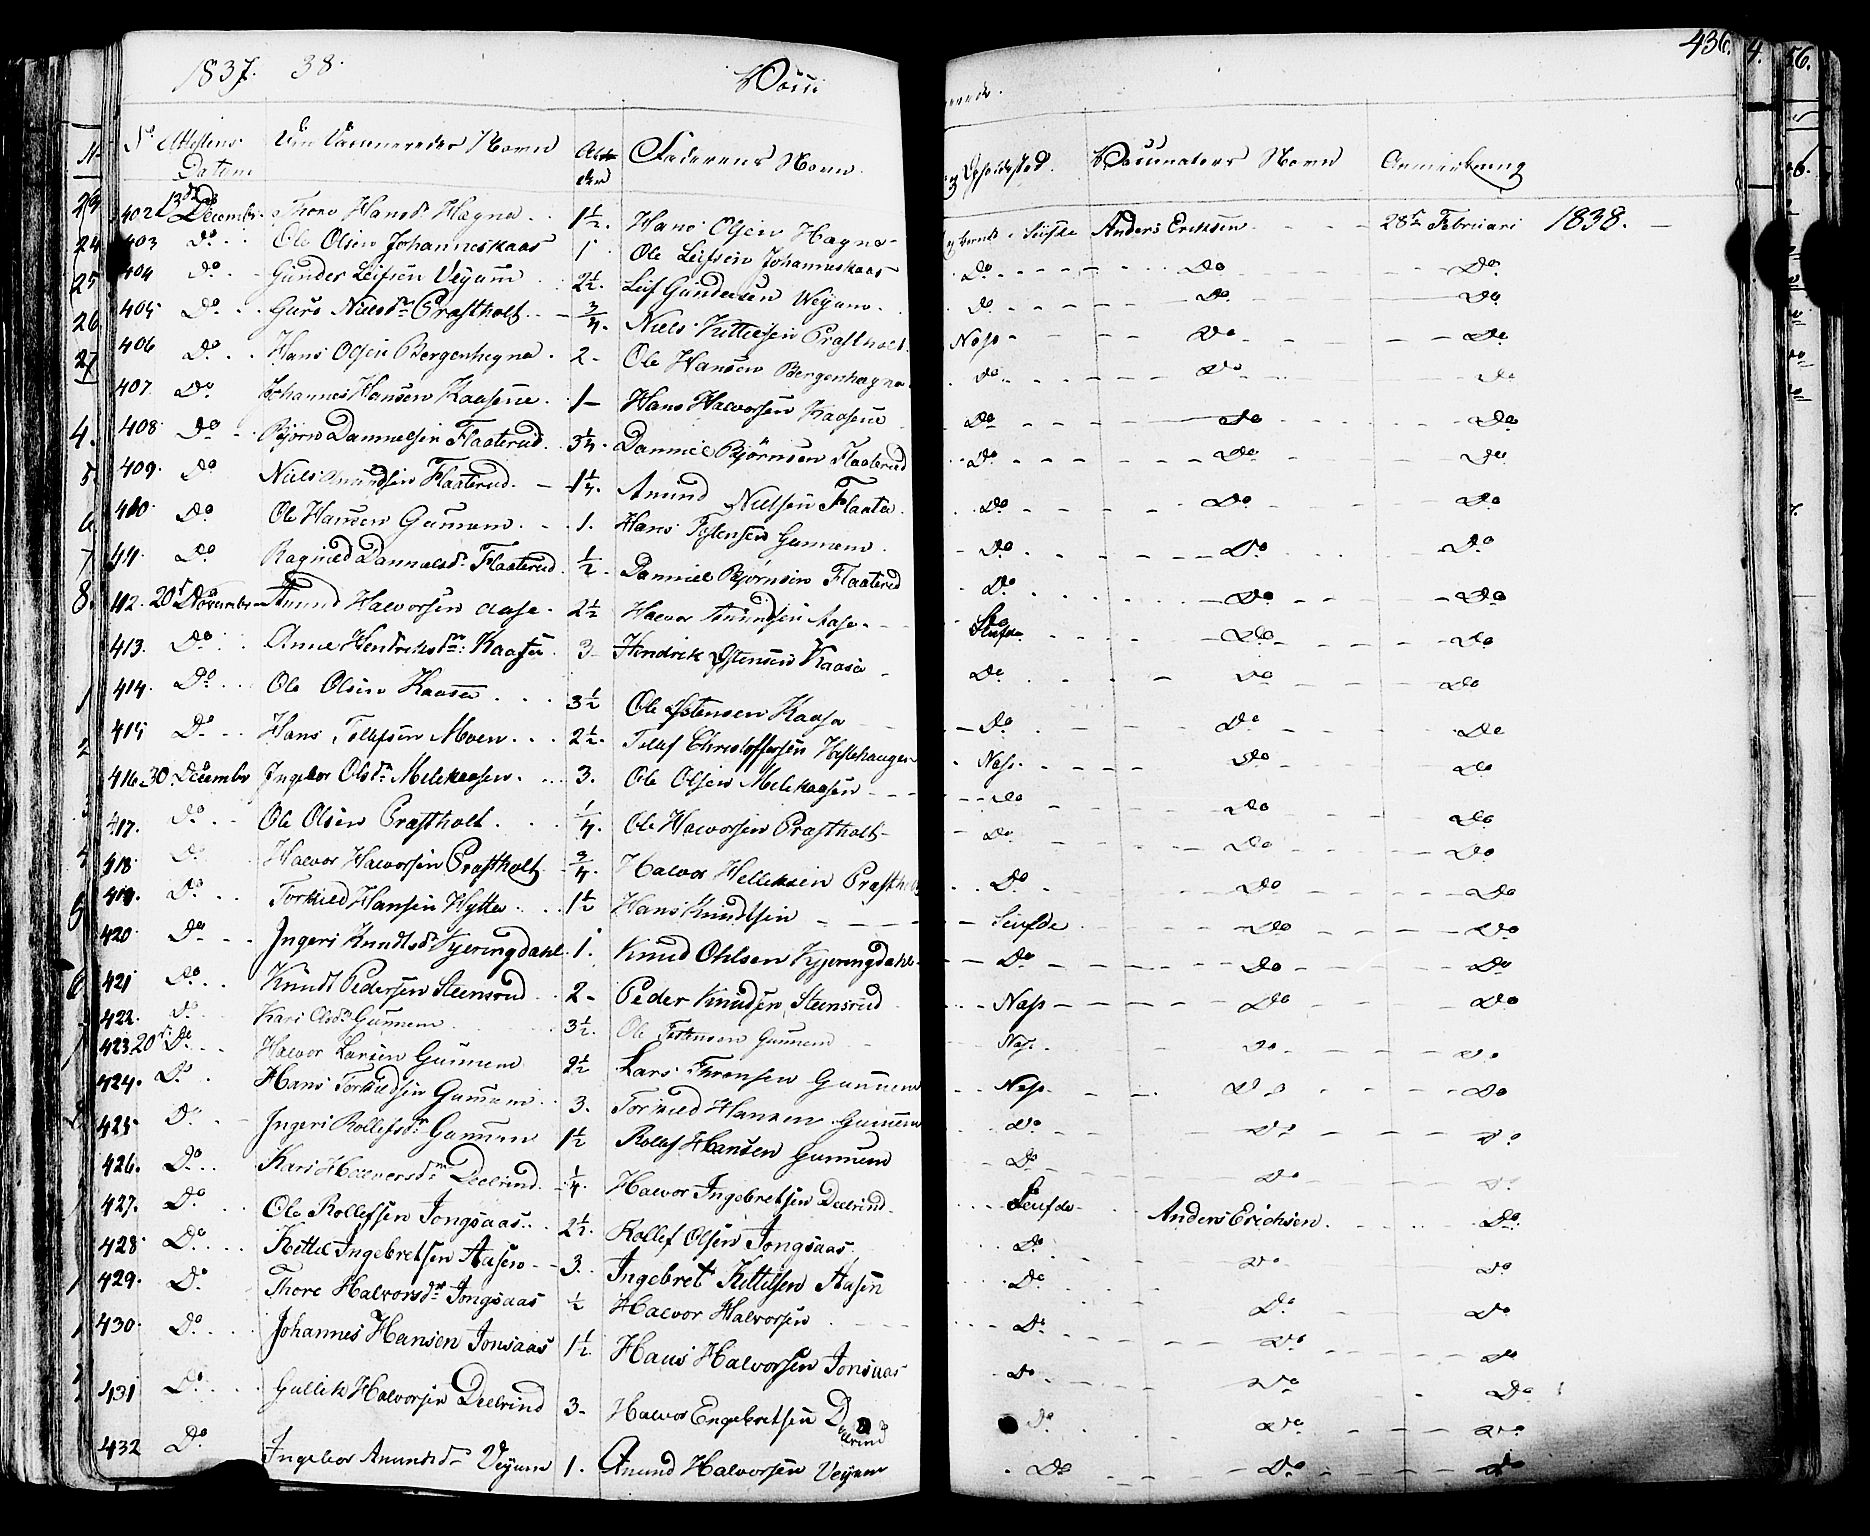 1837. 38.
436.
No Attestens Datum Alder Faderens Navn Opholdssted. Vaccinateurs Navn Anmærkning
402 13de Decembr. Thore Hansdr Hagna 1½. Hans Olsen Hagna Anders Eriksen 28de Februari 1838.
403 Do Ole Olsen Johanneskaas 1 Ole Leifsen Johanneskaas Do Do Do
404 Do Gunder Leifsen Veyum 2½. Leif Gundersen Weyum Do Do Do
405 Do Guro Nielsdr Præstholt ¾. Niels Kittelsen Præstholt Næss Do Do
406 Do Hans Olsen Bergenhagna 2 Ole Hansen Bergenhagna Do Do Do
407 Do Johannes Hansen Kaasene 1 Hans Halvorsen Kaasene Do Do Do
408 Do Bjørn Dannielsen Flaaterud 3¼ Danniel Bjørnsen Flaaterud Do Do Do
409 Do Niels Anundsen Flaaterud 1¼. Anund Nielsen Flaata Do Do Do
410 Do Ole Hansen Gunnem 1. Hans Gunnem Do Do Do
411 Do Ragnild Dannielsdr Flaaterud ½ Danniel Bjørnsen Flaaterud Do Do Do
412. 20de Novembr Anund Halvorsen Aase 2½ Halvor Anundsen Aase Seufde Do Do
413. Do Anne Hendriksdr Kaasa 3 Hendrik Østensen Kaasa Do Do Do
414 Do Ole Olsen Kaasa 3½ Ole Østensen Kaasa Do Do Do
415 Do Hans Tollefsen Moen 2½. Tolef Christoffersen Næss Do Do
416 30 Decembr Ingebor Olsdr Melekaasen 3. Ole Olsen Melekaasen Do Do Do
417. Do Ole Olsen Præstholt ¼. Ole Halvorsen Præstholt Do Do Do
418 Do Halvor Halvorsen Præstholt ¾. Halvor Helleksen Præstholt Do Do Do
419. Do Torkild Hansen Hytta 1½ Hans Knudtsen Seufde Do Do
420 Do Ingeri Knudtsdr Kjeringdahl 1. Knud Ohlsen Kjeringdahl Do Do Do
421 Do Knudt Pedersen Steensrud 2 Peder Knudsen Steensrud Næss Do Do
422. Do Kari Olsdr Gunnem 3½. Ole Gunnem Næss Do Do
423 20de Do Halvor Larsen Gunnem 2½ Lars Thronsen Gunnem Næss Do Do
424. Do Hans Torkildsen Gunnem 3. Torkild Hansen Gunnem Do Do Do
425 Do Ingeri Rollefsdr Gunnem 1½ Rollef Hansen Gunnem Do Do Do
426. Do Kari Halvorsdr Deelrind ¼. Halvor Ingebretsen Deelrind Seufde Anders Erichsen Do
427. Do Ole Rollefsen Jongsaas 2½. Rollef Olsen Jongsaas Do Do Do
428 Do Kettel Ingebretsen Aasen 3. Ingebret Kittelsen Aasen Do Do Do
429. Do Thore Halvorsdr Jongsaas ½ Halvor Halvorsen Do Do Do
430 Do Johannes Hansen Jonsaas 1½ Hans Halvorsen Jonsaas Do Do Do
431 Do Gullik Halvorsen Deelrind 3 Halvor Engebretsen Deelrind Do Do Do
432 Do Ingebor Anundsdr Veyum 1. Anund Halvorsen Veyum Do Do Do